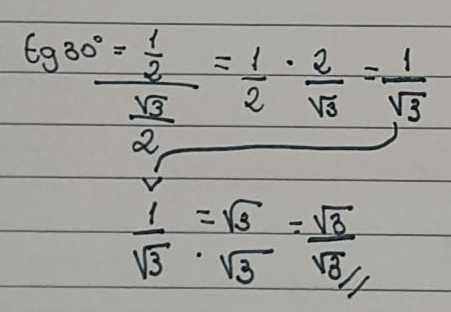 tg30° = 1/2 / √3/2 = 1/2 · 2/√3 = 1/√3
1/√3 = √3 / · √3 = √3/√3 //